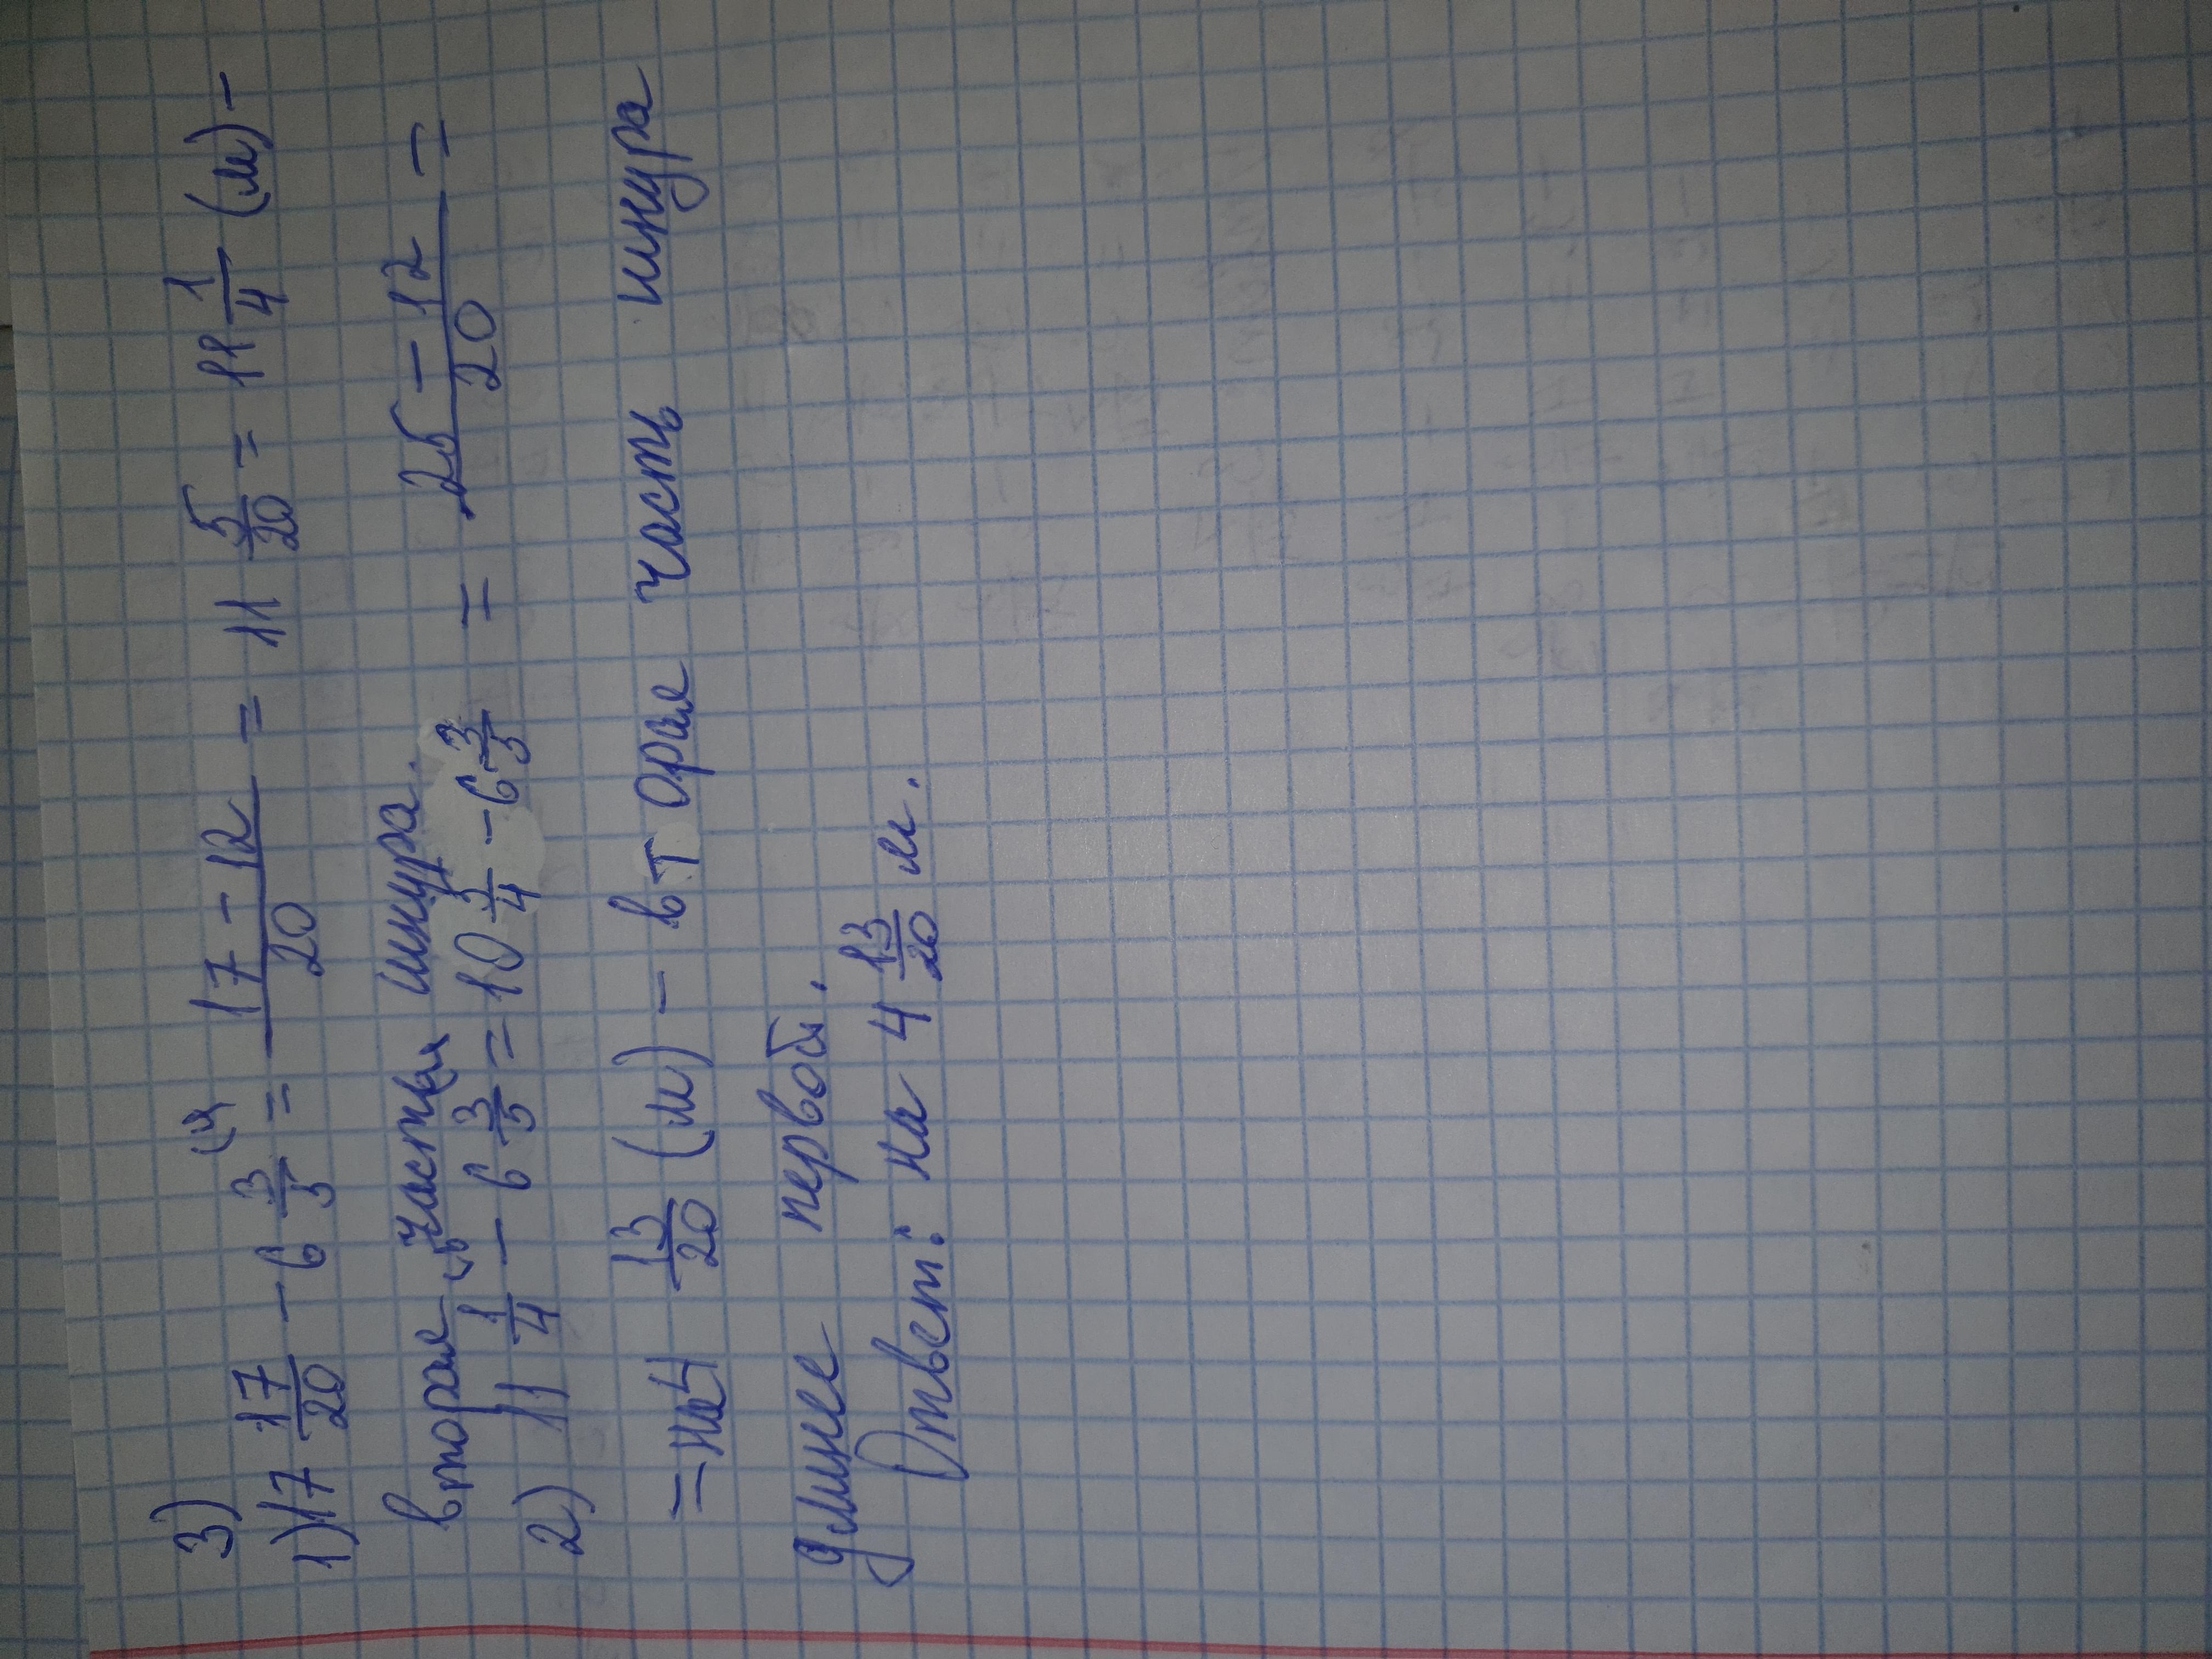 3)
1) 17 17/20 - 6 3/5 (4 = 17-12/20 = 11 5/20 = 11 1/4 (м) -
вторая часть шнура.
2) 11 1/4 - 6 3/5 = 10 5/4 - 6 3/5 = 25-12/20 =
= на 4 13/20 (м) - вторая часть шнура
длинее первой.
Ответ: на 4 13/20 м.